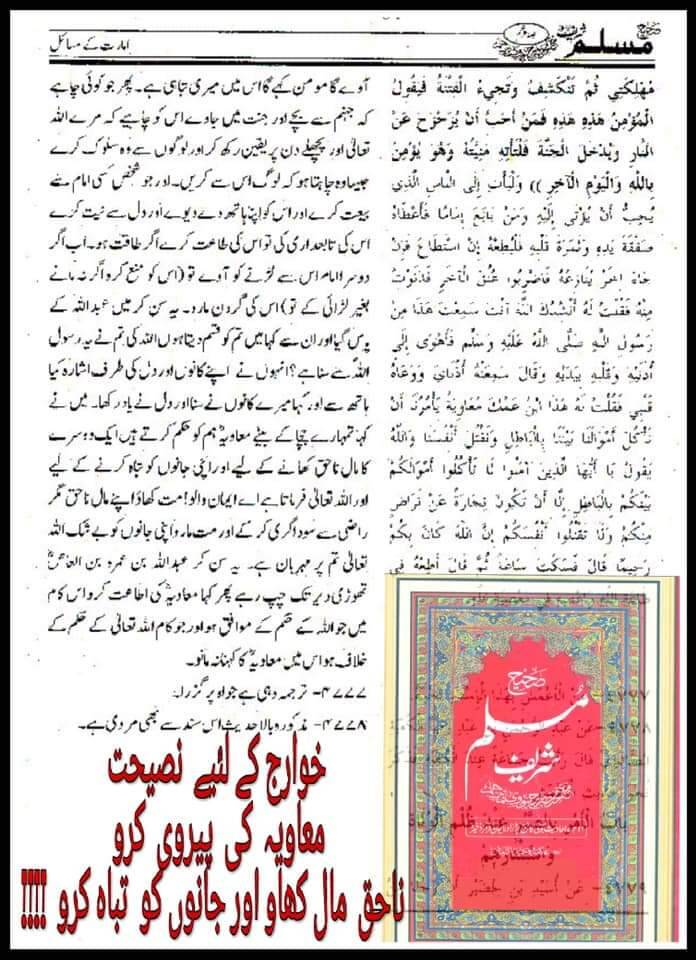 صحیح مسلم شریف
امارت کے مسائل
مُهْلِكَتِي ثُمَّ تَنْكَشِفُ وَتَجِيءُ الْفِتْنَةُ فَيَقُولُ
الْمُؤْمِنُ هَذِهِ هَذِهِ فَمَنْ أَحَبَّ أَنْ يُزَحْزَحَ عَنْ
النَّارِ وَيُدْخَلَ الْجَنَّةَ فَلْتَأْتِهِ مَنِيَّتُهُ وَهُوَ يُؤْمِنُ
بِاللَّهِ وَالْيَوْمِ الْآخِرِ )) وَلْيَأْتِ إِلَى النَّاسِ الَّذِي
يُحِبُّ أَنْ يُؤْتَى إِلَيْهِ وَمَنْ بَايَعَ إِمَامًا فَأَعْطَاهُ
صَفْقَةَ يَدِهِ وَثَمَرَةَ قَلْبِهِ فَلْيُطِعْهُ إِنْ اسْتَطَاعَ فَإِنْ
جَاءَ آخَرُ يُنَازِعُهُ فَاضْرِبُوا عُنُقَ الْآخَرِ فَدَنَوْتُ
مِنْهُ فَقُلْتُ لَهُ أَنْشُدُكَ اللَّهَ آنْتَ سَمِعْتَ هَذَا مِنْ
رَسُولِ اللَّهِ صَلَّى اللَّهُ عَلَيْهِ وَسَلَّمَ فَأَهْوَى إِلَى
أُذُنَيْهِ وَقَلْبِهِ بِيَدَيْهِ وَقَالَ سَمِعَتْهُ أُذُنَايَ وَوَعَاهُ
قَلْبِي فَقُلْتُ لَهُ هَذَا ابْنُ عَمِّكَ مُعَاوِيَةُ يَأْمُرُنَا أَنْ
نَأْكُلَ أَمْوَالَنَا بَيْنَنَا بِالْبَاطِلِ وَنَقْتُلَ أَنْفُسَنَا وَاللَّهُ
يَقُولُ يَا أَيُّهَا الَّذِينَ آمَنُوا لَا تَأْكُلُوا أَمْوَالَكُمْ
بَيْنَكُمْ بِالْبَاطِلِ إِلَّا أَنْ تَكُونَ تِجَارَةً عَنْ تَرَاضٍ
مِنْكُمْ وَلَا تَقْتُلُوا أَنْفُسَكُمْ إِنَّ اللَّهَ كَانَ بِكُمْ
رَحِيمًا قَالَ فَسَكَتَ سَاعَةً ثُمَّ قَالَ أَطِعْهُ فِي
آوے گا مومن کہے گا اس میں میری تباہی ہے۔ پھر جو کوئی چاہے
کہ جہنم سے بچے اور جنت میں جاوے اس کو چاہیے کہ مرے اللہ
تعالیٰ اور پچھلے دن پر یقین رکھ کر اور لوگوں سے وہ سلوک کرے
جیسا وہ چاہتا ہو کہ لوگ اس سے کریں۔ اور جو شخص کسی امام سے
بیعت کرے اور اس کو اپنا ہاتھ دے دیوے اور دل سے نیت کرے
اس کی تابعداری کی تو اس کی طاعت کرے اگر طاقت ہو۔ اب اگر
دوسرا امام اس سے لڑنے کو آوے تو (اس کو منع کرو اگر نہ مانے
بغیر لڑائی کے تو) اس کی گردن مارو۔ یہ سن کر میں عبداللہ کے
پاس گیا اور ان سے کہا میں تم کو قسم دیتا ہوں اللہ کی تم نے یہ رسول
اللہؐ سے سنا ہے؟ انہوں نے اپنے کانوں اور دل کی طرف اشارہ کیا
ہاتھ سے اور کہا میرے کانوں نے سنا اور دل نے یاد رکھا۔ میں نے
کہا تمہارے چچا کے بیٹے معاویہؓ ہم کو حکم کرتے ہیں ایک دوسرے
کا مال ناحق کھانے کے لیے اور اپنی جانوں کو تباہ کرنے کے لیے
اور اللہ تعالیٰ فرماتا ہے اے ایمان والو! مت کھاؤ اپنے مال ناحق مگر
راضی سے سوداگری کر کے اور مت مارو اپنی جانوں کو بے شک اللہ
تعالیٰ تم پر مہربان ہے۔ یہ سن کر عبداللہ بن عمرو بن العاصؓ
تھوڑی دیر تک چپ رہے پھر کہا معاویہؓ کی اطاعت کرو اس کام
میں جو اللہ کے حکم کے موافق ہو اور جو کام اللہ تعالیٰ کے حکم کے
خلاف ہو اس میں معاویہؓ کا کہنا نہ مانو۔
۴۷۷۷- ترجمہ وہی ہے جو اوپر گزرا۔
۴۷۷۸- مذکورہ بالا حدیث اس سند سے بھی مروی ہے۔
صحیح
مسلم
شریف
بَابُ الْأَمْرِ بِالصَّبْرِ عِنْدَ ظُلْمِ الْوُلَاةِ
وَاسْتِئْثَارِهِمْ
عَنْ أُسَيْدِ بْنِ حُضَيْرٍ
خوارج کے لئیے نصیحت
معاویہ کی پیروی کرو
ناحق مال کھاو اور جانوں کو تباہ کرو !!!!